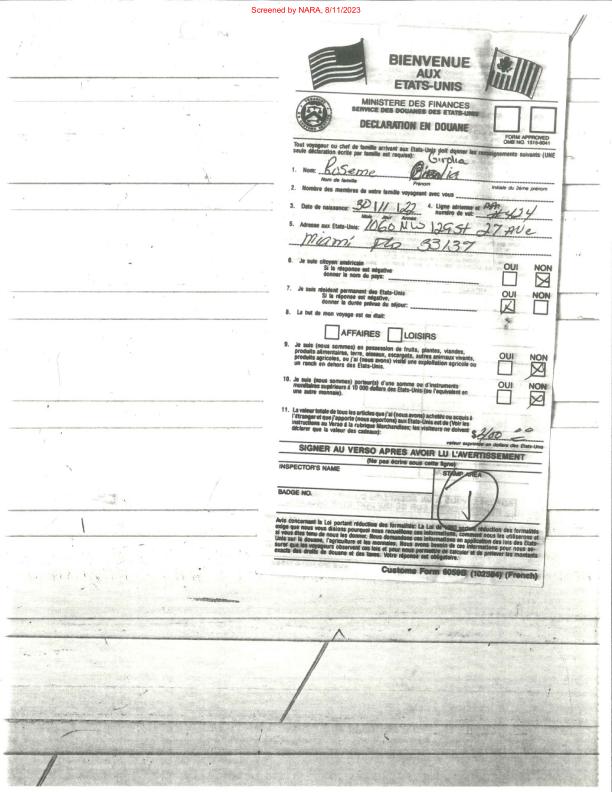 Screened by NARA, 8/11/2023
BIENVENUE
AUX
ETATS-UNIS
MINISTERE DES FINANCES
SERVICE DES DOUANES DES ETATS-UNIS
DECLARATION EN DOUANE
FORM APPROVED
OMB NO. 1515-0041
Tout voyageur ou chef de famille arrivant aux Etats-Unis doit donner les renseignements suivants (UNE
seule déclaration écrite par famille est requise):
Girolia
1. Nom: Roseme
Nom de famille Prénom Initiale du 2ème prénom
2. Nombre des membres de votre famille voyageant avec vous
3. Date de naissance: 30 11 22 4. Ligne aérienne et numéro de vol: #424
Mois Jour Année
5. Adresse aux Etats-Unis: 1060 NW 129 St 27 AVe
Miami Fla 33137
6. Je suis citoyen américain OUI NON
Si la réponse est négative
donner le nom du pays:
7. Je suis résident permanent des Etats-Unis OUI NON
Si la réponse est négative,
donner la durée prévue du séjour:
8. Le but de mon voyage est ou était:
AFFAIRES LOISIRS
9. Je suis (nous sommes) en possession de fruits, plantes, viandes, OUI NON
produits alimentaires, terre, oiseaux, escargots, autres animaux vivants,
produits agricoles, ou j'ai (nous avons) visité une exploitation agricole ou
un ranch en dehors des Etats-Unis.
10. Je suis (nous sommes) porteur(s) d'une somme ou d'instruments OUI NON
monétaires supérieurs à 10 000 dollars des Etats-Unis (ou l'équivalent en
une autre monnaie).
11. La valeur totale de tous les articles que j'ai (nous avons) achetés ou acquis à
l'étranger et que j'apporte (nous apportons) aux Etats-Unis est de (Voir les
instructions au Verso à la rubrique Marchandises; les visiteurs ne doivent
déclarer que la valeur des cadeaux): $
valeur exprimée en dollars des Etats-Unis
SIGNER AU VERSO APRES AVOIR LU L'AVERTISSEMENT
(Ne pas écrire sous cette ligne)
INSPECTOR'S NAME STAMP AREA
BADGE NO.
Avis concernant la Loi portant réduction des formalités: La Loi de portant réduction des formalités
exige que nous vous disions pourquoi nous recueillons ces informations, comment nous les utiliserons et
si vous êtes tenu de nous les donner. Nous demandons ces informations en application des lois des Etats-
Unis sur la douane, l'agriculture et les monnaies. Nous avons besoin de ces informations pour nous as-
surer que les voyageurs observent ces lois et pour nous permettre de calculer et de prélever les montants
exacts des droits de douane et des taxes. Votre réponse est obligatoire.
Customs Form 6059B (102584) (French)